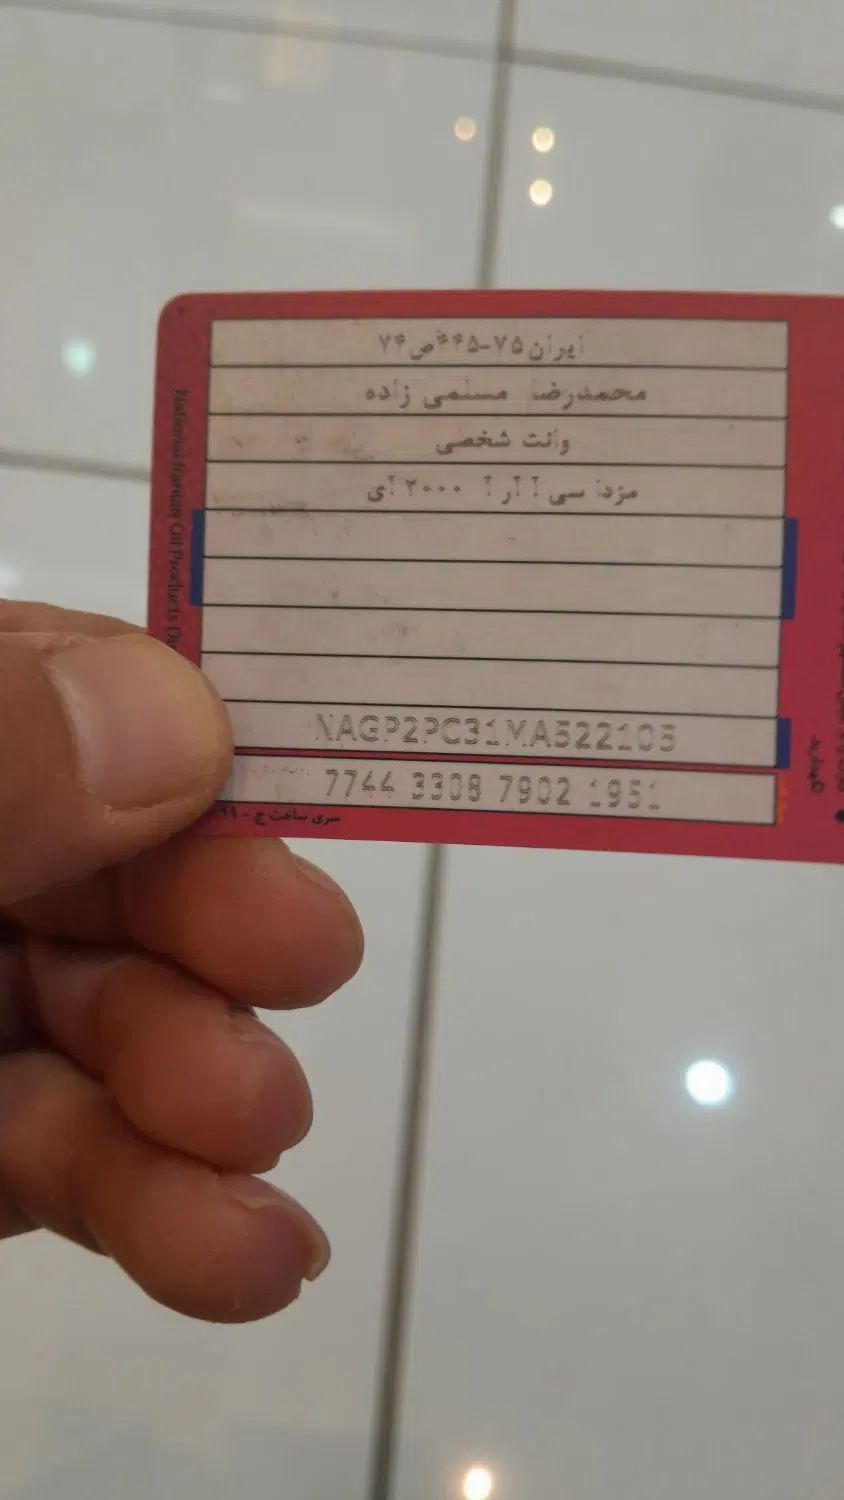 ایران ۷۵-۴۴۵ص۷۴
محمدرضا مسلمی زاده
وانت شخصی
مزدا سی آ آر آ ۲۰۰۰ آی
NAGP2PC31MA522105
7744 3308 7902 1951
سری ساخت ج - ۹۹
National Iranian Oil Products